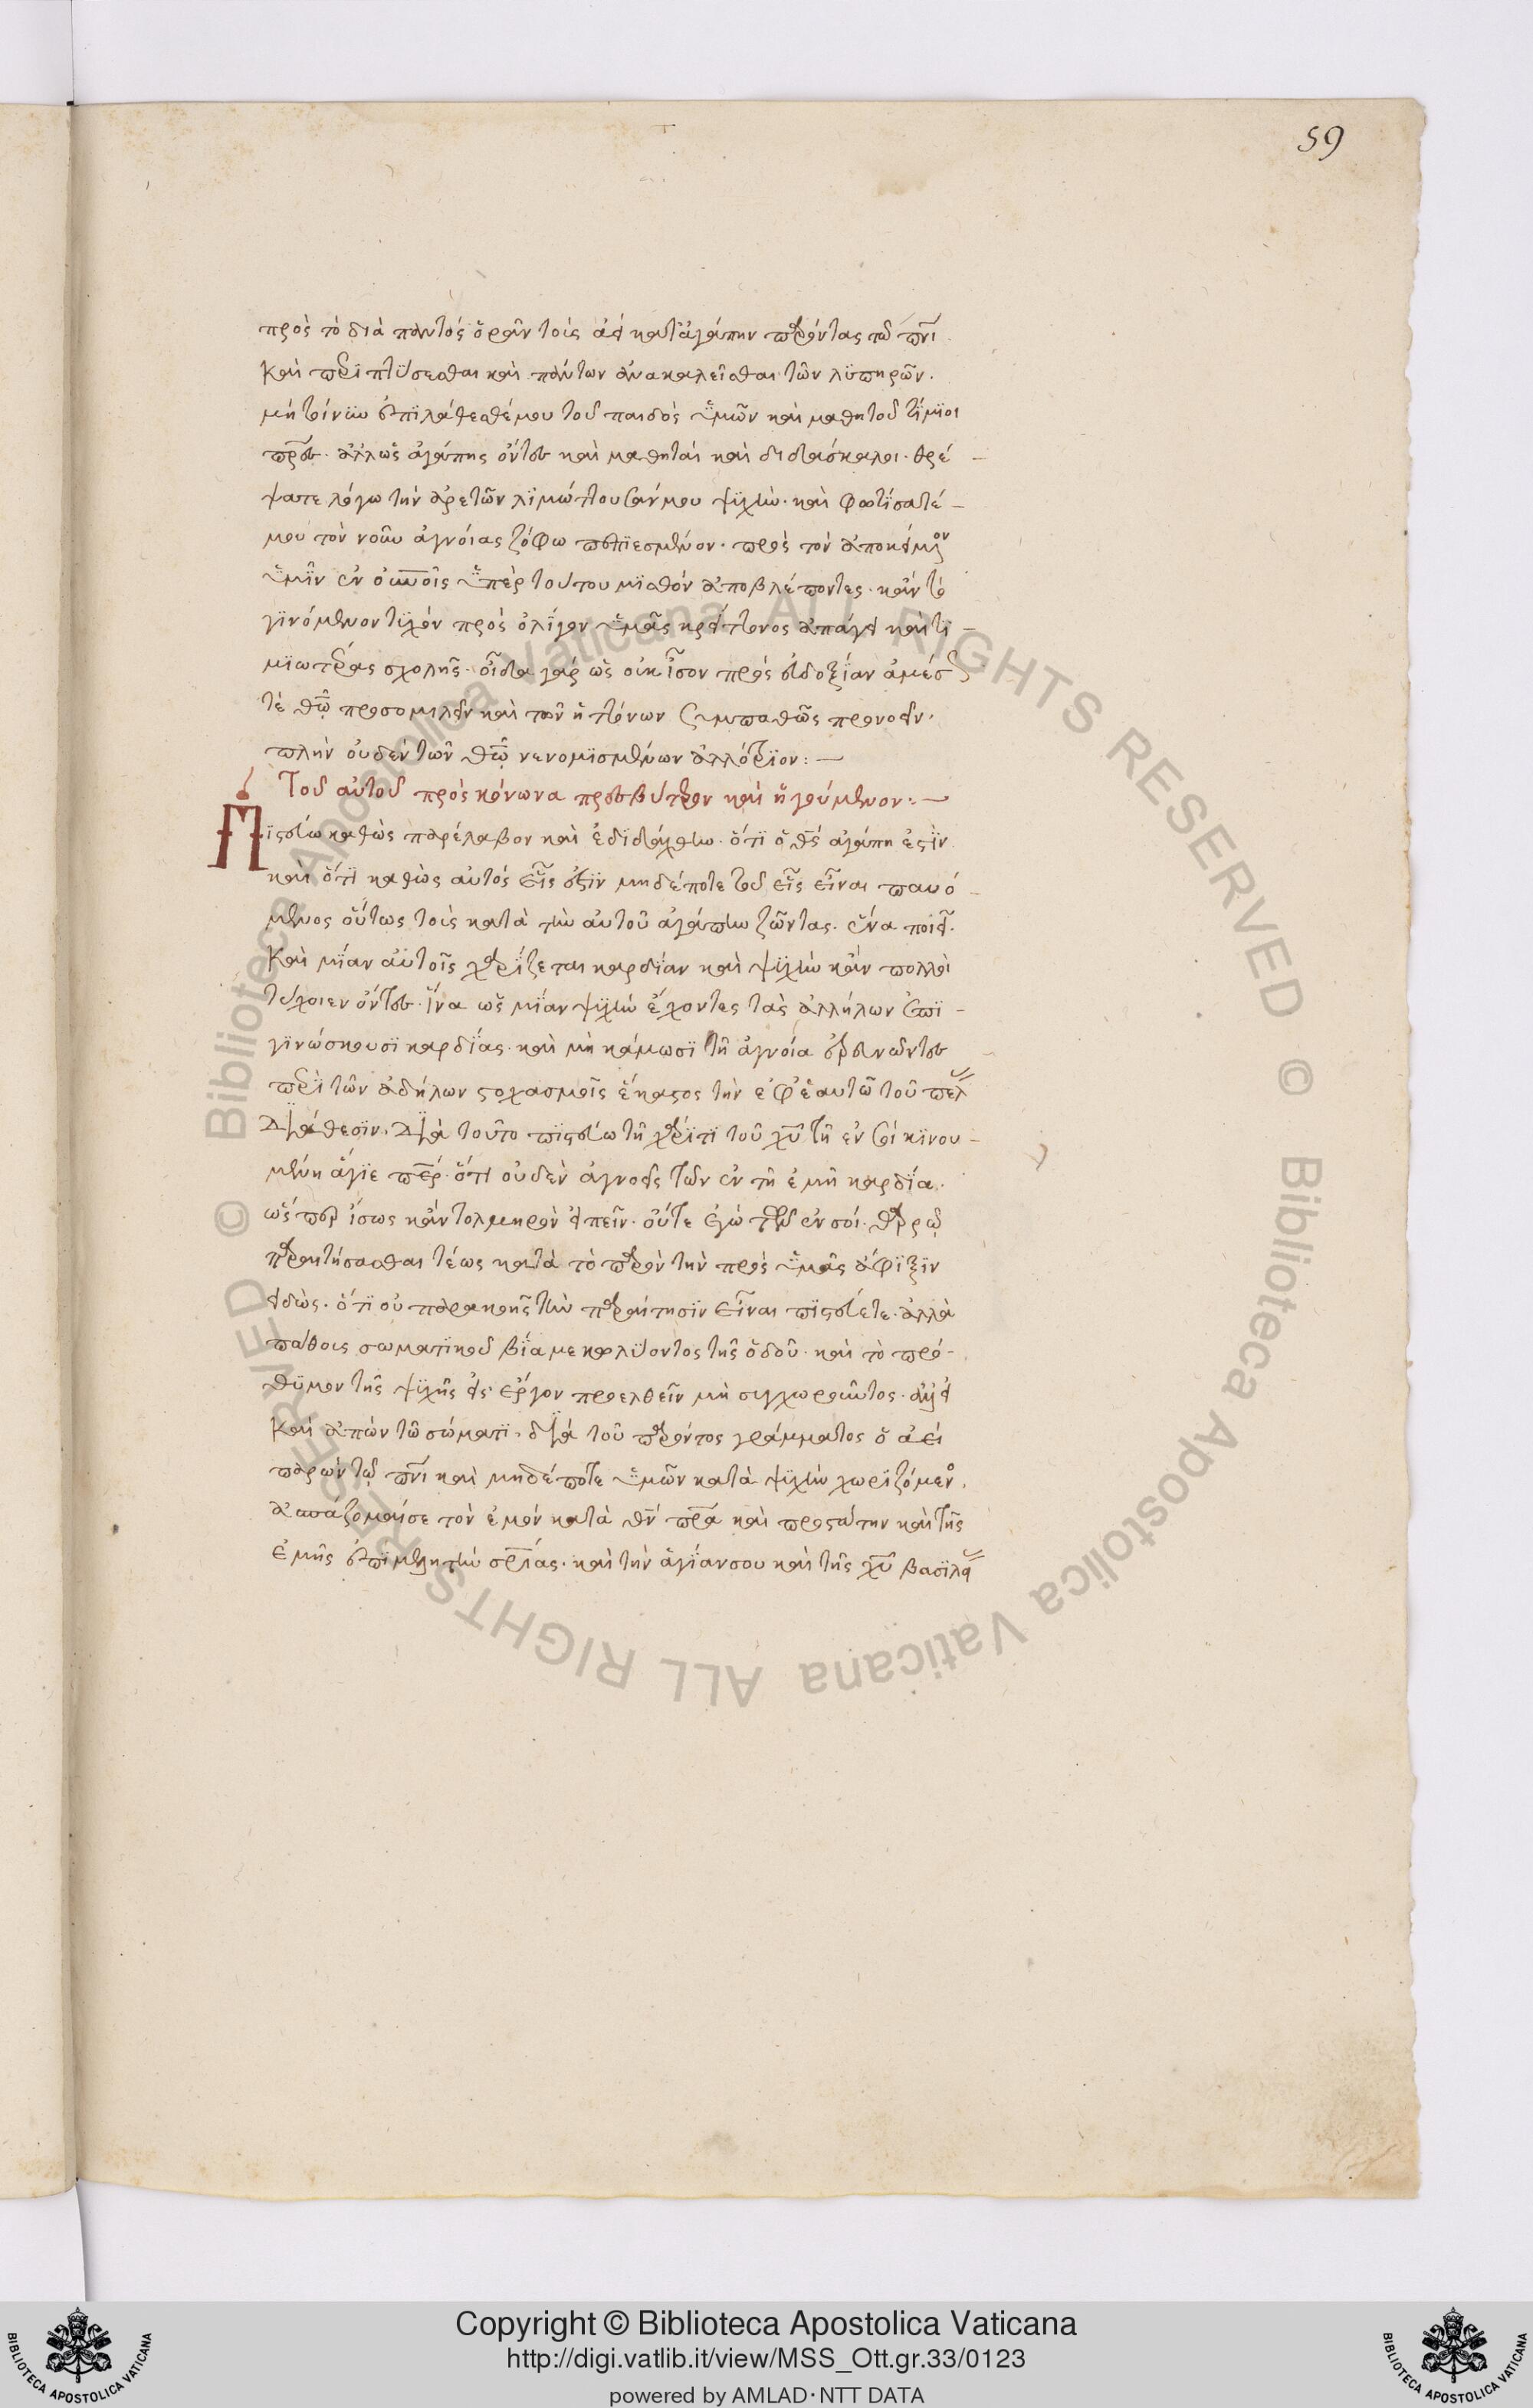 59
πρὸς τὸ διὰ παντὸς ὁρᾶν τοὺς ἀεὶ κατ' ἀγάπην παρόντας τῶ πνι
καὶ περιπτύσεσθαι καὶ πάντων ἀνακαλεῖσθαι τῶν λϋπηρῶν.
μὴ τοίνυν ἐπϊλάθεσθέ μου τοῦ παιδὸς ὑμῶν καὶ μαθητοῦ τίμϊοι
πρες. ἀλλ' ὡς ἀγάπης ὄντες καὶ μαθηταὶ καὶ διδάσκαλοι. θρέ
ψατε λόγω τὴν ἀρετῶν λϊμώττουσάν μου ψϋχὴν. καὶ φωτίσατέ
μου τὸν νοῦν ἀγνοίας ζόφω πεπϊεσμένον. πρὸς τὸν ἀποκείμενον
ὑμῖν ἐν οὐνοῖς ὑπὲρ τούτου μϊσθὸν ἀποβλέποντες. κἂν τὸ
γϊνόμενον τϋχὸν πρὸς ὀλίγον ὑμᾶς κρείττονος ἀπάγει καὶ τϊ
μϊωτέρας σχολῆς. οἶδα γὰρ ὡς οὐκ ἴσον πρὸς εὐδοξΐαν ἀμέσ
τὲ θῶ προσομιλεῖν καὶ τῶν ἡττόνων συμπαθῶς προνοεῖν.
πλὴν οὐδὲν τῶν θῶ νενομϊσμένων ἀλλότριον:
Τοῦ αὐτοῦ πρὸς κόνωνα πρεσβύτερον καὶ ἡγούμενον:
Πϊστεύω καθὼς παρέλαβον καὶ ἐδϊδάχθην. ὅτϊ ὁ θς ἀγάπη ἐστὶν
καὶ ὅτϊ καθὼς αὐτὸς εἷς ἐστϊν μηδέποτε τοῦ εἷς εἶναι παυό
μενος οὕτως τοὺς κατὰ τὴν αὐτοῦ ἀγάπην ζῶντας. ἕνα ποιεῖ.
Καὶ μΐαν αὐτοῖς χαρΐζεται καρδίαν καὶ ψϋχὴν κἂν πολλοὶ
τύχοιεν ὄντες. ἵνα ὡς μΐαν ψϋχὴν ἔχοντες τὰς ἀλλήλων ἐπϊ
γϊνώσκουσϊ καρδΐας. καὶ μὴ κάμωσϊ τῆ ἀγνοία ἐρευνῶντες
περὶ τῶν ἀδήλων στοχασμοῖς ἕκαστος τὴν ἐφ' ἑαυτῶ τοῦ πελ
διάθεσϊν. διὰ τοῦτο πϊστεύω τῆ χάρϊτϊ τοῦ χυ τῆ ἐν σοὶ κϊνου
μένη ἅγϊε περ. ὅτϊ οὐδὲν ἀγνοεῖς τῶν ἐν τῆ ἐμῆ καρδΐα.
ὥσπερ ἴσως κἂν τολμηρὸν εἰπεῖν. οὔτε ἐγὼ τῶν ἐν σοί. θαρρῶ
παραιτήσασθαι τέως κατὰ τὸ παρὸν τὴν πρὸς ὑμᾶς ἄφϊξϊν
εἰδὼς. ὅτϊ οὐ παρακοῆς τὴν παραίτησϊν εἶναι πϊστεύετε. ἀλλὰ
πάθους σωματϊκοῦ βΐα με κωλϋοντος τῆς ὁδοῦ. καὶ τὸ πρό
θϋμον τῆς ψϋχῆς εἰς ἔργον προελθεῖν μὴ συγχωροῦντος. ἀλλ' εἰ
Καὶ ἀπὼν τῶ σώματϊ. διὰ τοῦ παρόντος γράμματος ὁ ἀεὶ
παρὼν τῷ πνι καὶ μηδέποτε ὑμῶν κατὰ ψϋχὴν χωρϊζόμενο.
ἀσπάζομαί σε τὸν ἐμὸν κατὰ θν πρα καὶ προστάτην καὶ τῆς
ἐμῆς ἐπϊμελητὴν σρίας. καὶ τὴν ἁγΐαν σου καὶ τῆς χυ βασϊλεί
Copyright © Biblioteca Apostolica Vaticana
http://digi.vatlib.it/view/MSS_Ott.gr.33/0123
powered by AMLAD·NTT DATA
BIBLIOTECA APOSTOLICA VATICANA
BIBLIOTECA APOSTOLICA VATICANA
© Biblioteca Apostolica Vaticana ALL RIGHTS RESERVED © Biblioteca Apostolica Vaticana ALL RIGHTS RESERVED